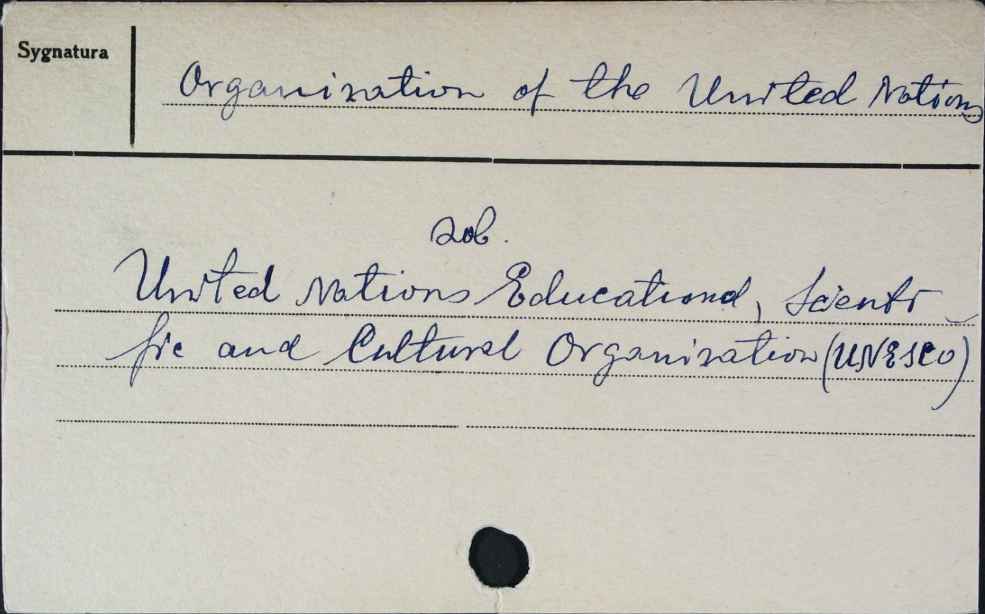 Sygnatura
Organization of the United Nations
zob.
United Nations Educational, Scienti-
fic and Cultural Organization (UNESCO)